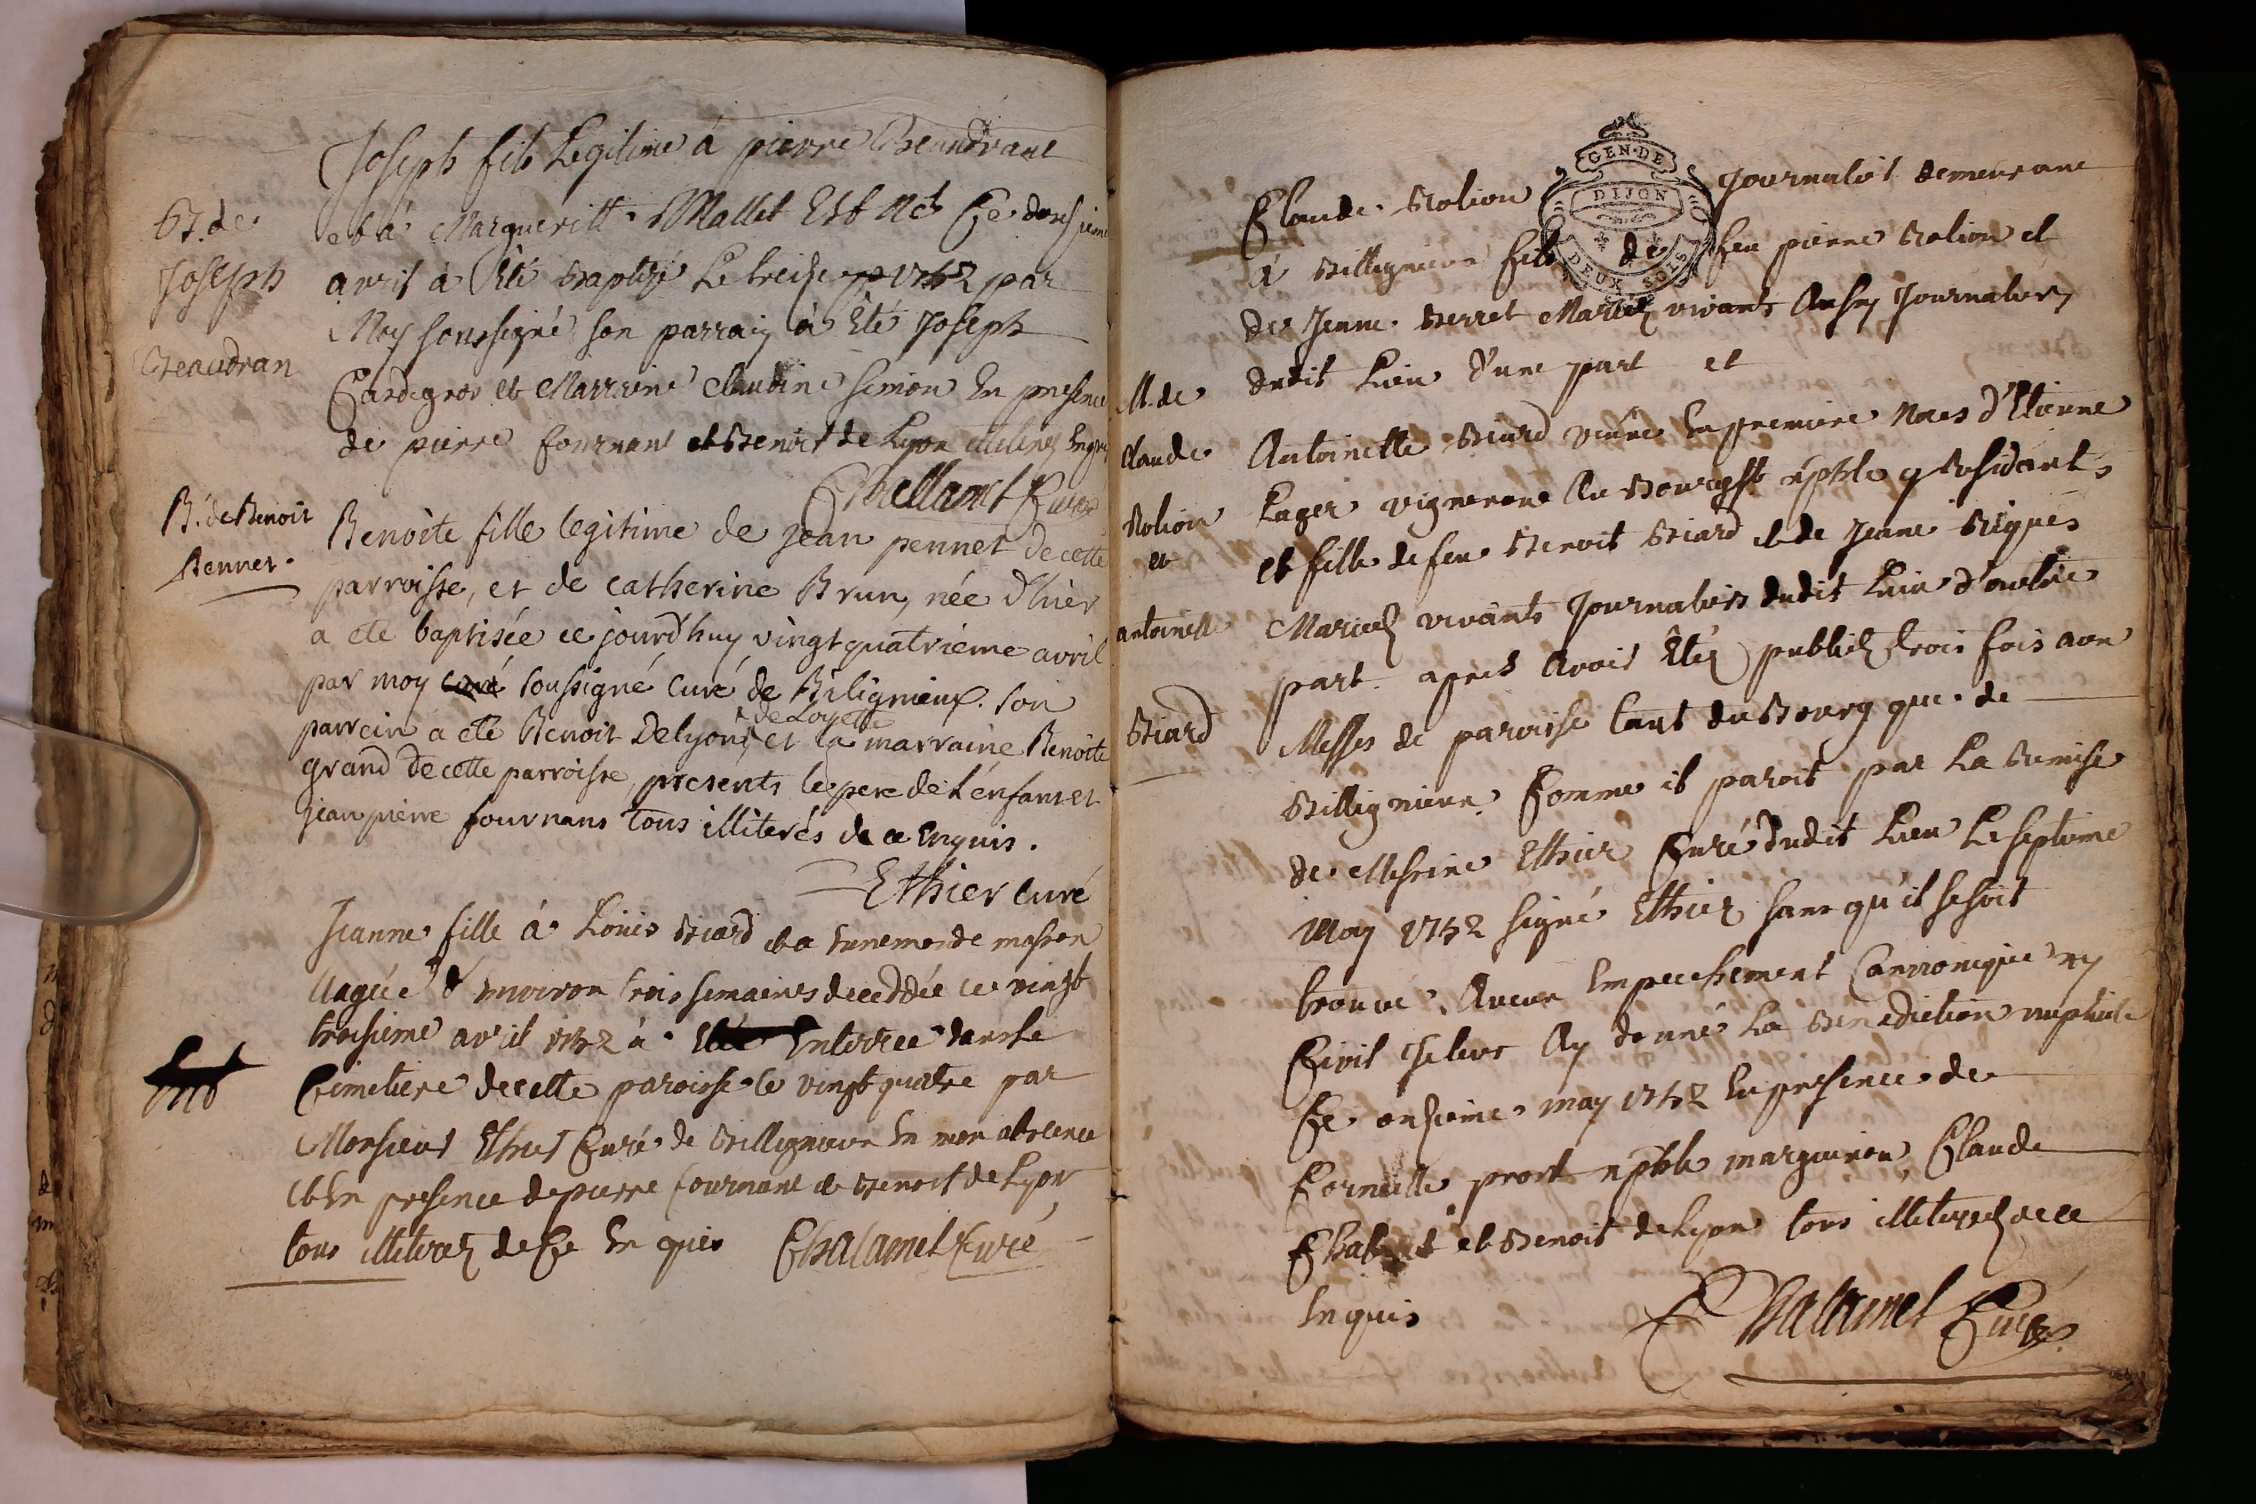 B. de
Joseph
Beaudran
Joseph fils Legitime à pierre Beaudrant
et à Margueritte Mallet Est Né Ce
avril à Eté Baptizé Le treize 1752 par
Moy soussigné son parrain à Eté Joseph
Cardegros et Marraine Claudine simon En presence
de pierre fournant et Benoit de Lyon
Challamel Curé
B. de Benoit
Pennet.
Benoite fille legitime de jean pennet de cette
parroisse, et de catherine Brun, née d'hier
a eté baptisée ce jourd'huy vingtquatriéme avril
par moy curé soussigné curé de Biligneux. son
parrein a eté Benoit Delyon, de Loyette et la marraine Benoite
grand de cette parroisse, presents le pere de L'enfant et
jean pierre fournans tous illiterés de ce Enquis.
Ethier curé
Jeanne fille à Loüis Biard et a masson
aagée d'Environ trois semaines deceddée ce vingt
troisieme avril 1752 à Eté Enterree dans le
Cimetiere de cette paroisse le vingt quatre par
Monsieur Ethier Curé de Billigneux En mon absence
et En presence de pierre fournant et Benoit de Lyon
tous illiterez de Ce En quis Chalamel Curé
GEN. DE
DIJON
DEUX SOLS
Claude Bolion Journalier demeurant
à Billigneux fils de feu pierre Bolion et
de Jeanne Berret Mariez vivants Aussy Journaliers
dudit Lieu d'une part et
M. de
Claude
Bolion
et
antoinette
Biard
Antoinette Biard veuve En premiere Noces d'Etienne
Lager vigneron Au Bourg St Residants
et fille de feu Benoit Biard et de Jeanne
Mariez vivants Journaliers dudit Lieu d'autre
part apres avoir Etéz publiez trois fois aux
Messes de paroisse tant du Bourg que de
Billigneux Comme il paroit par La Remise
de Messire Ethier Curé dudit Lieu Le septieme
May 1752 signé Ethier sans qu'il se soit
trouvé Aucun Empechement Cannonique ny
Civil Je leur Ay donné La Benediction nuptiale
Ce onzieme may 1752 En presence de
Corneille prost marguinon, Claude
Chab et Benoit de Lyon tous illiterez de ce
En quis
Chalamel Curé